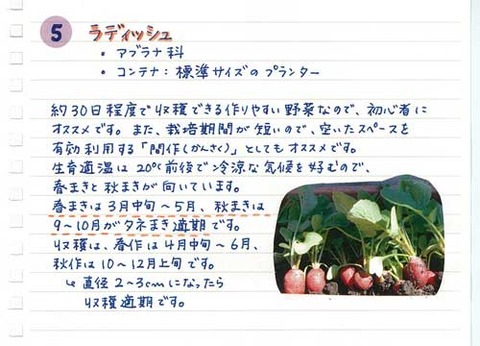 5 ラディッシュ
・アブラナ科
・コンテナ：標準サイズのプランター
約30日程度で収穫できる作りやすい野菜なので、初心者に
オススメです。また、栽培期間が短いので、空いたスペースを
有効利用する「間作(かんさく)」としてもオススメです。
生育適温は20℃前後で冷涼な気候を好むので、
春まきと秋まきが向いています。
春まきは3月中旬〜5月、秋まきは
9〜10月がタネまき適期です。
収穫は、春作は4月中旬〜6月、
秋作は10〜12月上旬です。
↳直径2〜3cmになったら
収穫適期です。